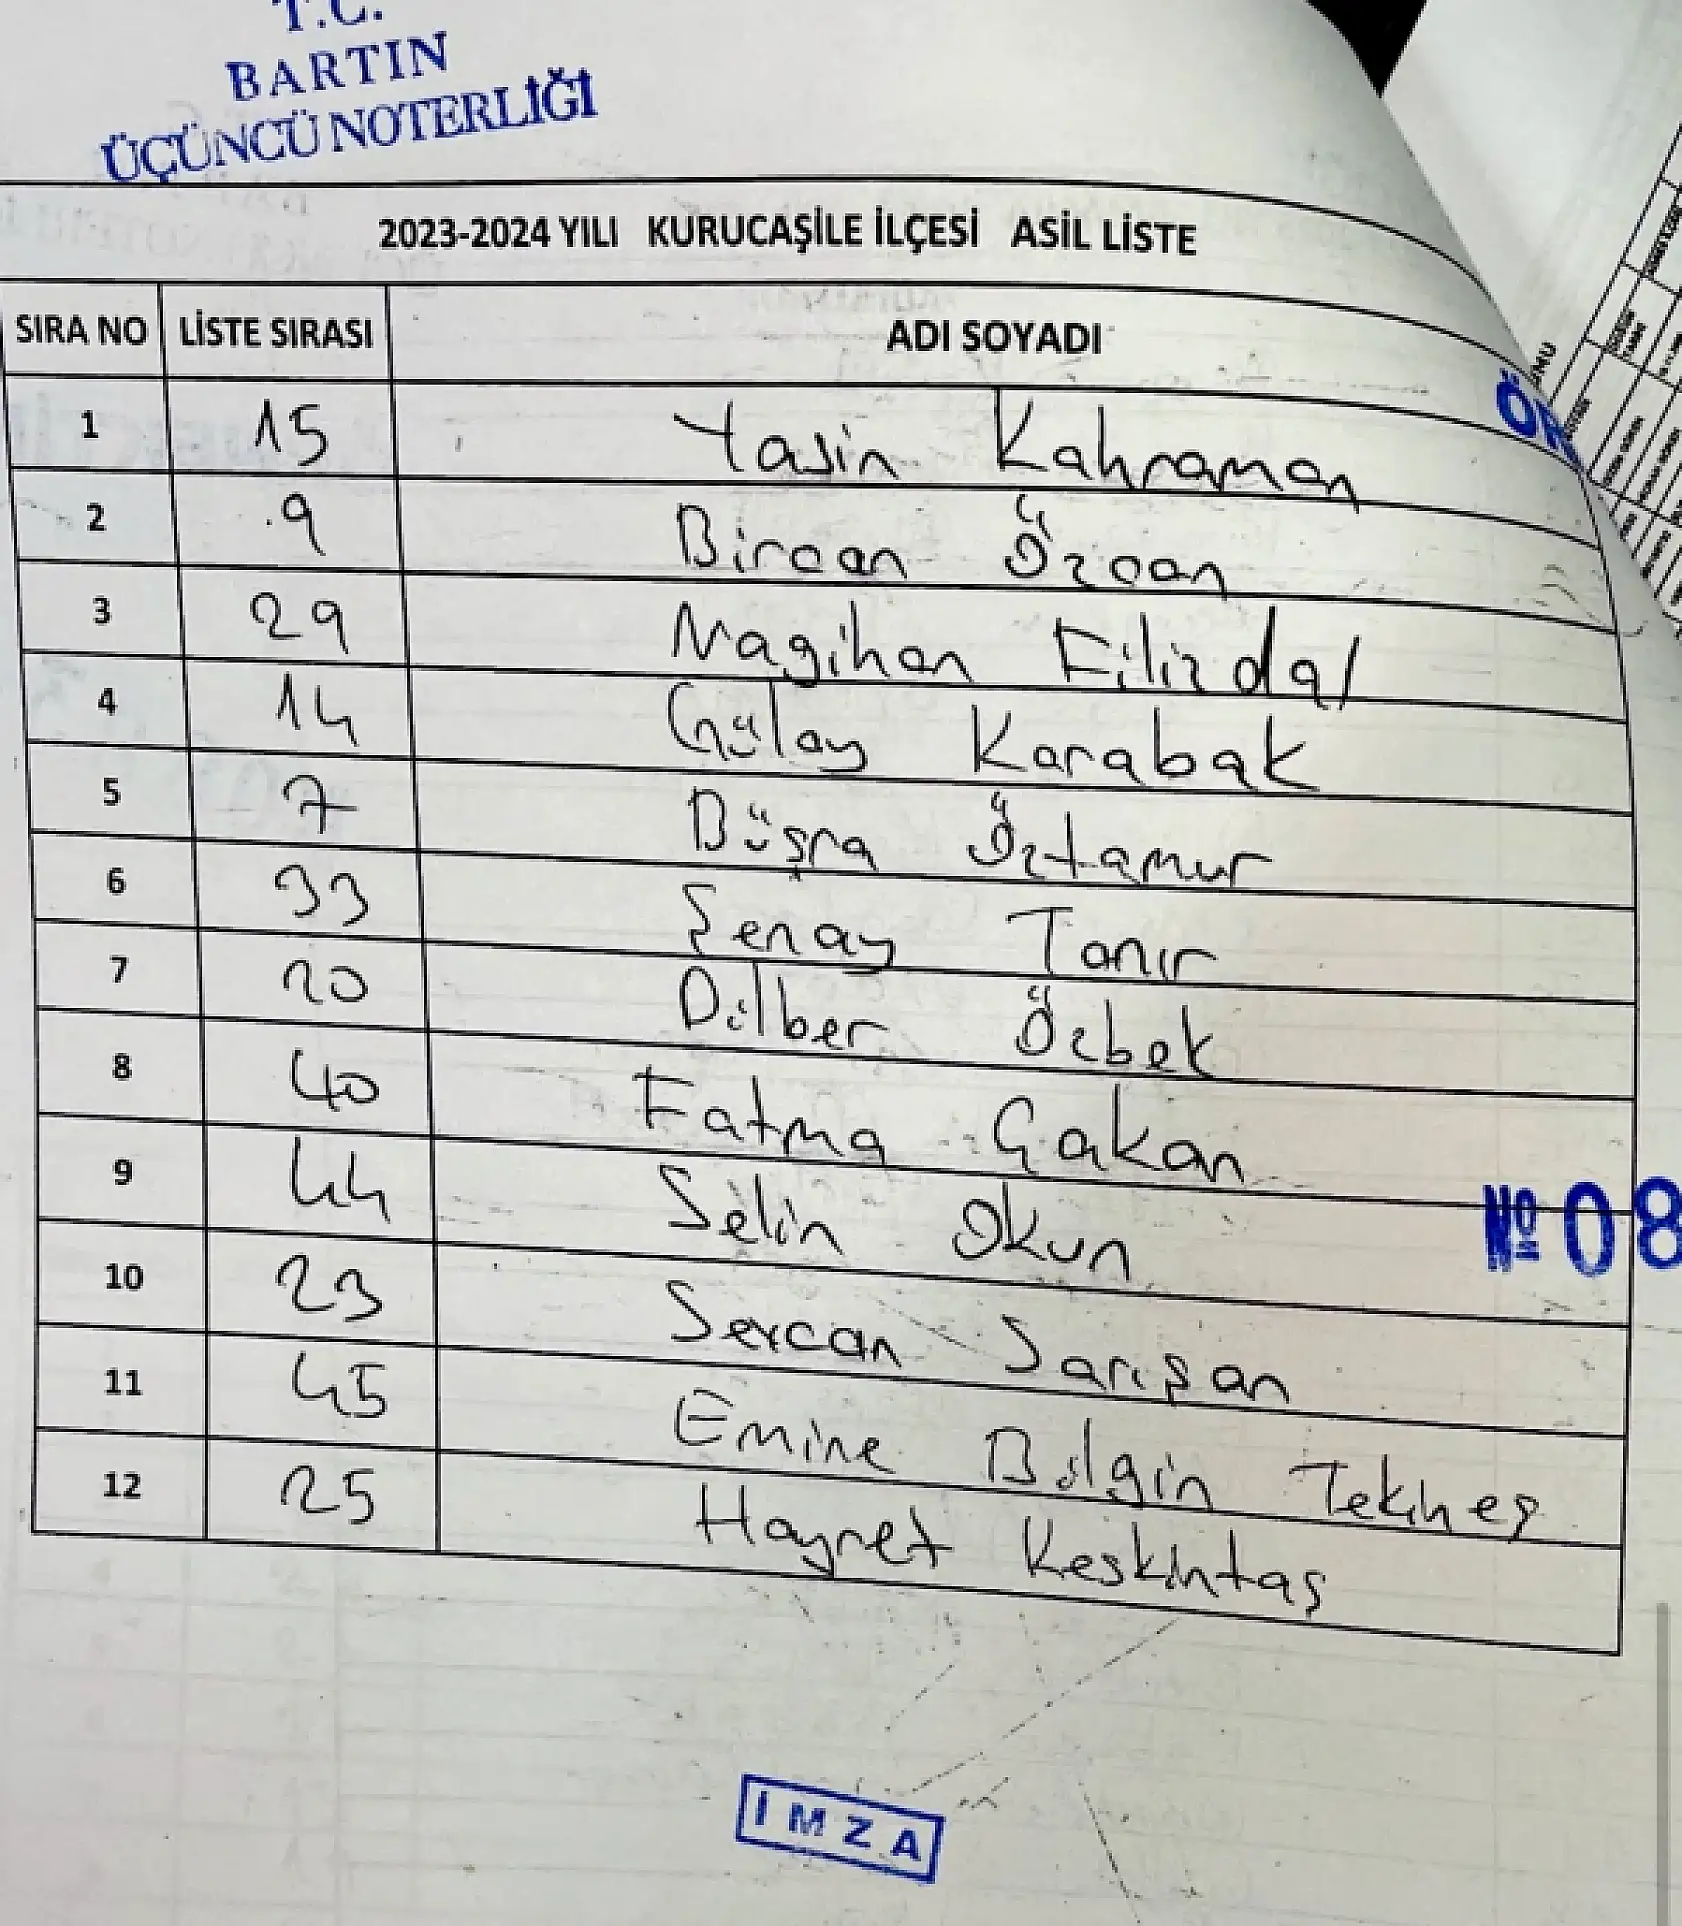 T.C.
BARTIN
ÜÇÜNCÜ NOTERLİĞİ
2023-2024 YILI KURUCAŞİLE İLÇESİ ASİL LİSTE
SIRA NO LİSTE SIRASI ADI SOYADI
1 15 Yasin Kahraman
2 9 Bircan Özcan
3 29 Nagihan Filizdal
4 14 Gülay Karabak
5 7 Büşra Öztamur
6 33 Şenay Tanır
7 20 Dilber Özbek
8 40 Fatma Çakan
9 44 Selin Okun
10 23 Sercan Sarışan
11 45 Emine Bilgin Tekineş
12 25 Hayret Keskintaş
№ 08
İMZA